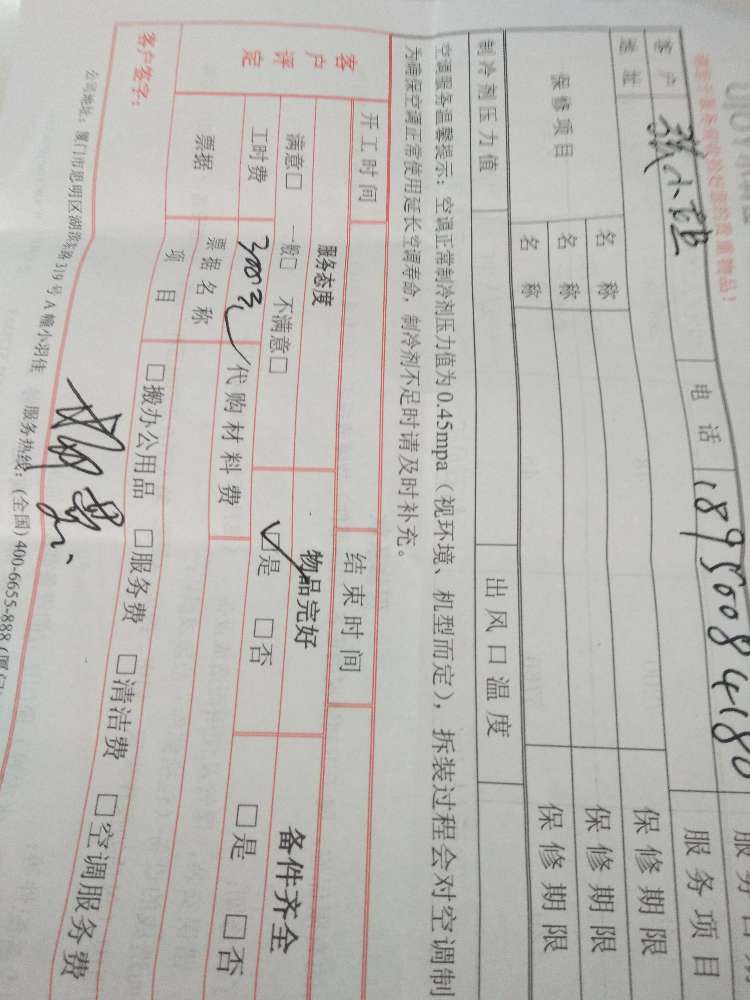 客户 张小姐 电话 18950084180 服务日期
地址 服务项目
保修项目 名称 保修期限
名称 保修期限
名称 保修期限
制冷剂压力值 出风口温度
空调服务温馨提示：空调正常制冷剂压力值为0.45mpa（视环境、机型而定），拆装过程会对空调制
为确保空调正常使用延长空调寿命，制冷剂不足时请及时补充。
开工时间 结束时间
客户评定 服务态度 物品完好 备件齐全
满意□ 一般□ 不满意□ □是 □否 □是 □否
工时费 300元 代购材料费
票据 票据名称
项目 □搬办公用品 □服务费 □清洁费 □空调服务费
客户签字：
公司地址：厦门市思明区湖滨东路319号A幢小羽佳 服务热线：(全国)400-6655-888